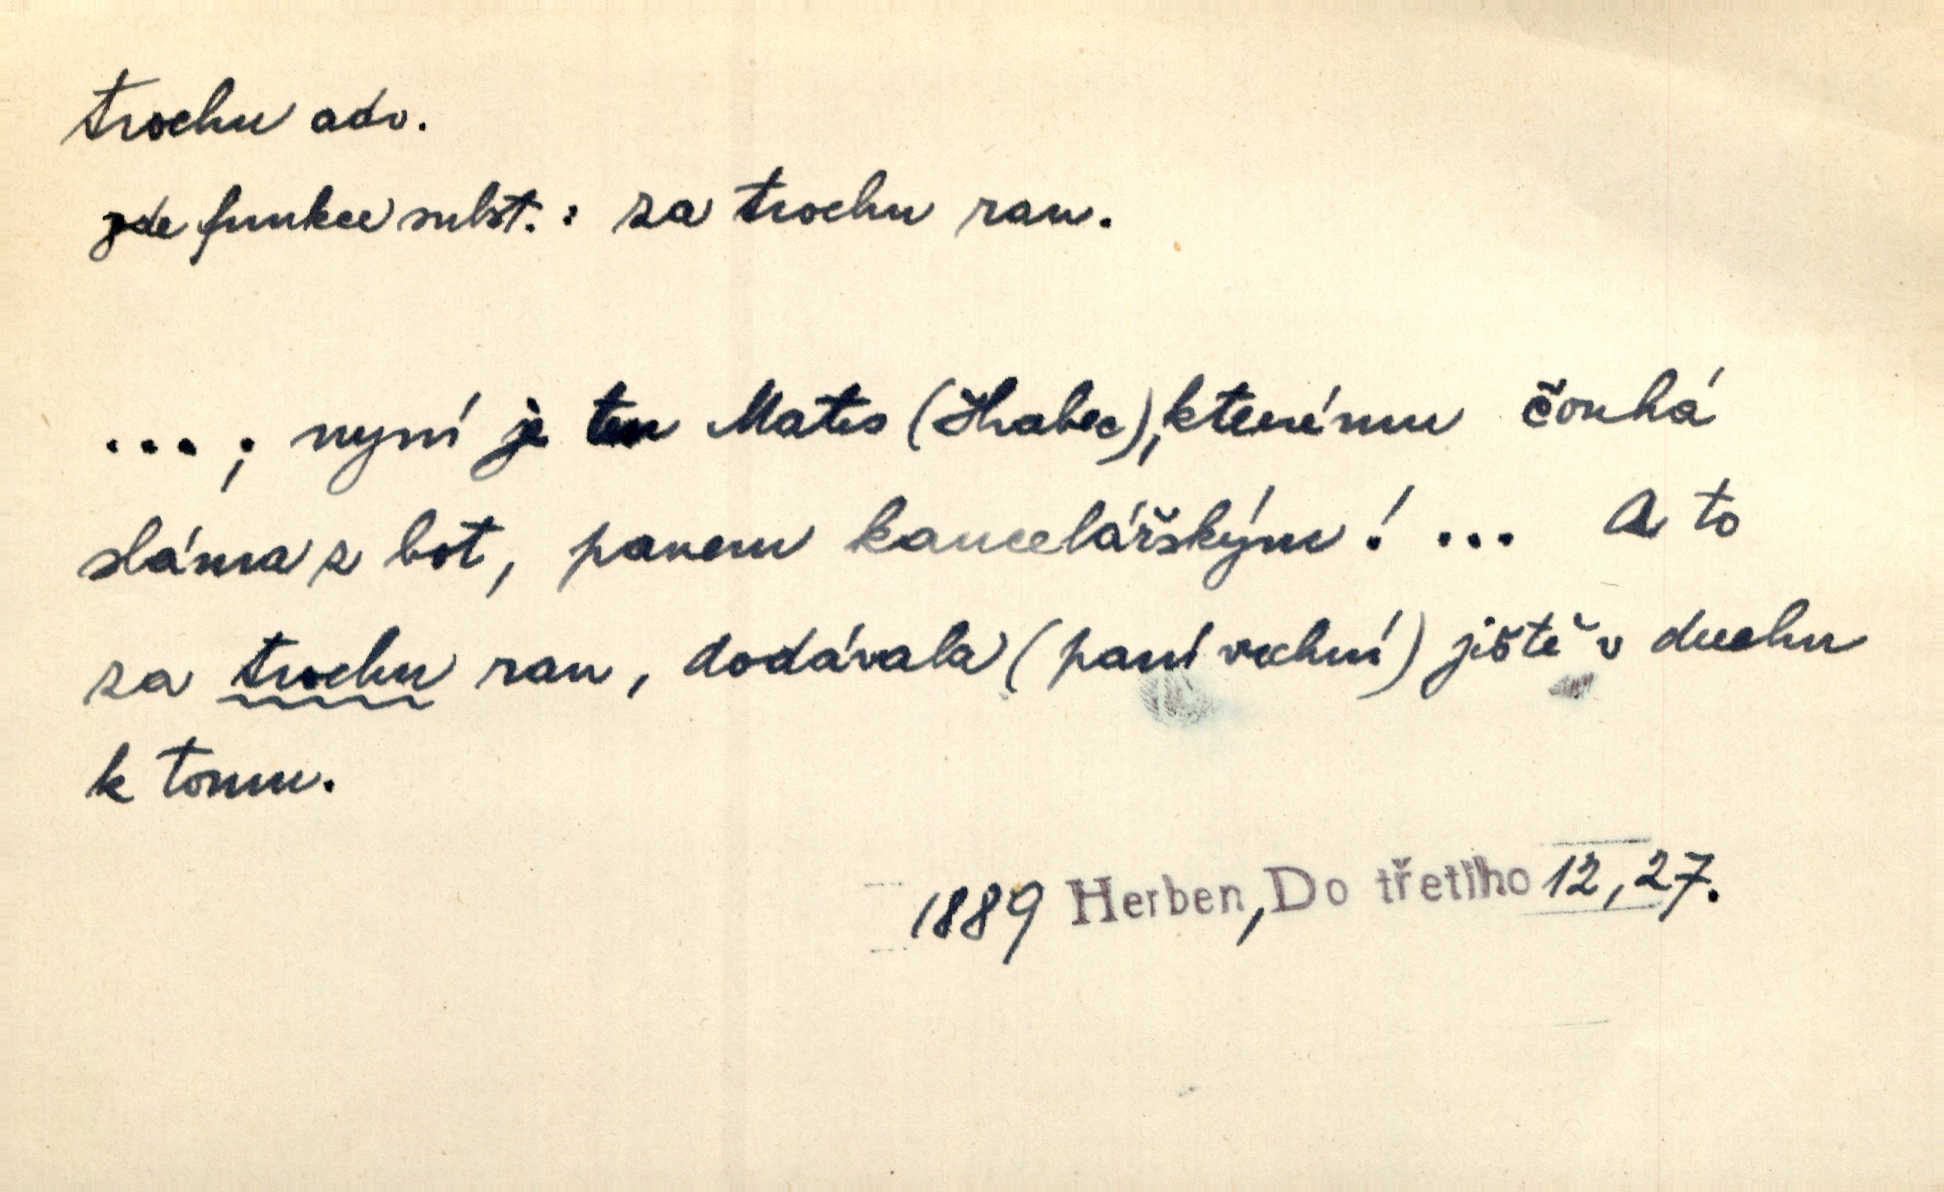 trochu adv.
zde funkce subst.: za trochu ran.
...; nyní je ten Mates (Hrabec), kterému čouhá
sláma z bot, panem kancelářským! ... A to
za trochu ran, dodávala (paní vrchní) jistě v duchu
k tomu.
1889 Herben, Do třetího 12, 27.